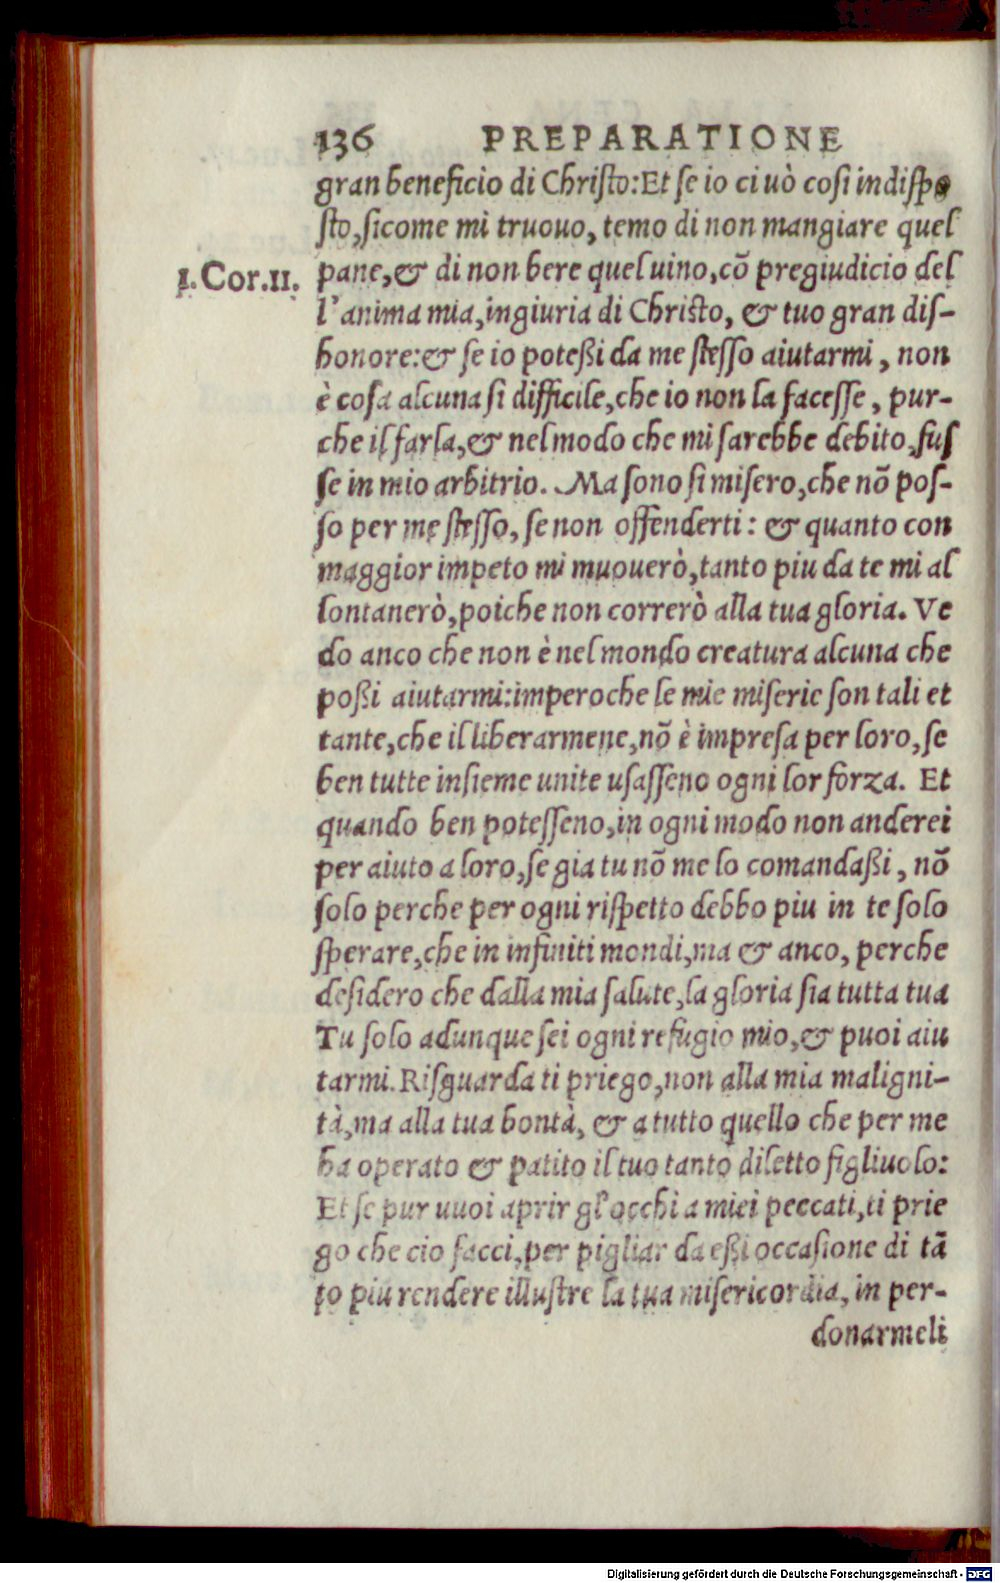 136 PREPARATIONE
gran beneficio di Chriſto:Et ſe io ci uò coſi indiſpo
ſto,ſicome mi truouo, temo di non mangiare quel
I.Cor.II. pane,& di non bere quel uino,cō pregiudicio del
l'anima mia,ingiuria di Chriſto, & tuo gran diſ-
honore:& ſe io poteßi da me ſteſſo aiutarmi, non
è coſa alcuna ſi difficile,che io non la faceſſe, pur-
che il farla,& nel modo che mi ſarebbe debito,fuſ
ſe in mio arbitrio. Ma ſono ſi miſero,che nō poſ-
ſo per me ſteſſo, ſe non offenderti: & quanto con
maggior impeto mi muouerò,tanto piu da te mi al
lontanerò,poiche non correrò alla tua gloria. Ve
do anco che non è nel mondo creatura alcuna che
poßi aiutarmi:imperoche le mie miſerie ſon tali et
tante,che il liberarmene,nō è impreſa per loro,ſe
ben tutte inſieme unite uſaſſeno ogni lor forza. Et
quando ben poteſſeno,in ogni modo non anderei
per aiuto a loro,ſe gia tu nō me lo comandaßi, nō
ſolo perche per ogni riſpetto debbo piu in te ſolo
ſperare,che in infiniti mondi,ma & anco, perche
deſidero che dalla mia ſalute,la gloria ſia tutta tua
Tu ſolo adunque ſei ogni refugio mio,& puoi aiu
tarmi.Riſguarda ti priego,non alla mia maligni-
tà,ma alla tua bontà, & a tutto quello che per me
ha operato & patito il tuo tanto diletto figliuolo:
Et ſe pur uuoi aprir gl'occhi a miei peccati,ti prie
go che cio facci,per pigliar da eßi occaſione di tā
to piu rendere illuſtre la tua miſericordia, in per-
donarmeli
Digitalisierung gefördert durch die Deutsche Forschungsgemeinschaft - DFG